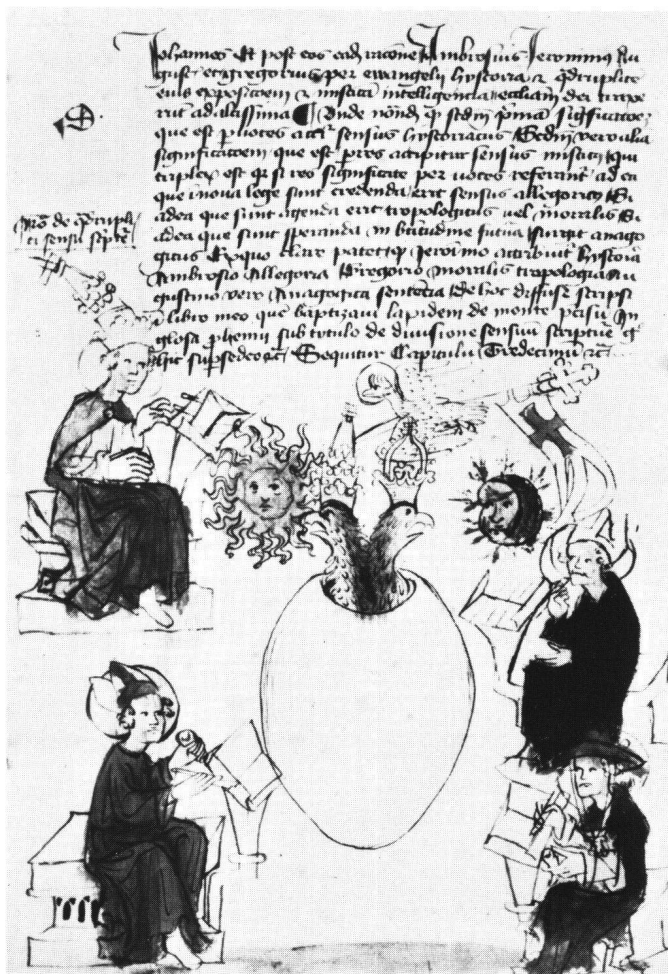 Johannes Et post eos eadē racione Ambrosius Jeronimus Au
gust' et gregorius per ewangelii hystoriā & q̄druplicē
eius exposicōem & misticā intelligenciā eccliam dei traxe
rūt ad altissima Unde nōnd q̄ scdm primā significacōe
que est p voces accr sensus hystoriacus Scdm vero alia
significacōem que est p res accipitur sensus misticꝰ qui
triplex est qr si res significate per voces referant' ad ea
que in nova lege sunt credenda erit sensus allegoricꝰ Si
ad ea que sunt agenda erit tropologicus vel moralis Si
ad ea que sunt speranda in btitudine futura surgit anago
gicus Ex quo clare patet q̄ Jeronimo attribuit' hystoria
Ambrosio Allegoria Gregorio moralis tropologia Au
gustino vero Anagogica sentēcia De hoc diffuse scripsi
libro meo que baptizavi lapidem de monte pcisū In
glosa phemii sub tytulo de divisione sensuū scripture
hic supsedeo ꝛc̄ Sequitur Capitulū Tredecimū ꝛc̄
de q̄drupli
ci sensu scpte